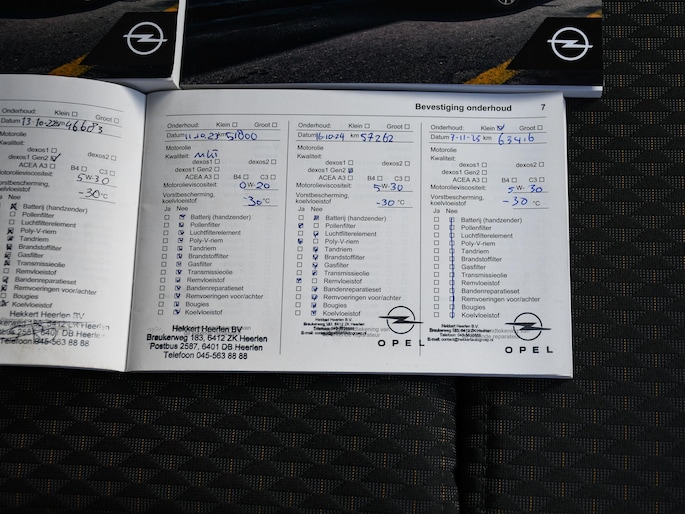 Bevestiging onderhoud 7
Onderhoud: Klein Groot
Datum 13-10-22 km 46683
Motorolie
Kwaliteit:
dexos1 dexos2
dexos1 Gen2
ACEA A3 B4 C3
Motorolieviscositeit: 5W-30
Vorstbescherming,
koelvloeistof -30°C
Ja Nee
Batterij (handzender)
Pollenfilter
Luchtfilterelement
Poly-V-riem
Tandriem
Brandstoffilter
Gasfilter
Transmissieolie
Remvloeistof
Bandenreparatieset
Remvoeringen voor/achter
Bougies
Koelvloeistof
Hekkert Heerlen BV
6412 ZK Heerlen
6401 DB Heerlen
Telefoon 045-563 88 88
Onderhoud: Klein Groot
Datum 11.10.23 km 51800
Motorolie
Kwaliteit:
dexos1 dexos2
dexos1 Gen2
ACEA A3 B4 C3
Motorolieviscositeit: 0W-20
Vorstbescherming,
koelvloeistof -30°C
Ja Nee
Batterij (handzender)
Pollenfilter
Luchtfilterelement
Poly-V-riem
Tandriem
Brandstoffilter
Gasfilter
Transmissieolie
Remvloeistof
Bandenreparatieset
Remvoeringen voor/achter
Bougies
Koelvloeistof
Hekkert Heerlen BV
Breukerweg 183, 6412 ZK Heerlen
Postbus 2587, 6401 DB Heerlen
Telefoon 045-563 88 88
Onderhoud: Klein Groot
Datum 16-10-24 km 57262
Motorolie
Kwaliteit:
dexos1 dexos2
dexos1 Gen2
ACEA A3 B4 C3
Motorolieviscositeit: 5W-30
Vorstbescherming,
koelvloeistof -30°C
Ja Nee
Batterij (handzender)
Pollenfilter
Luchtfilterelement
Poly-V-riem
Tandriem
Brandstoffilter
Gasfilter
Transmissieolie
Remvloeistof
Bandenreparatieset
Remvoeringen voor/achter
Bougies
Koelvloeistof
Hekkert Heerlen B.V.
Breukerweg 183, 6412 ZK Heerlen
OPEL
Onderhoud: Klein Groot
Datum 7-11-25 km 63416
Motorolie
Kwaliteit:
dexos1 dexos2
dexos1 Gen2
ACEA A3 B4 C3
Motorolieviscositeit: 5W-30
Vorstbescherming,
koelvloeistof -30°C
Ja Nee
Batterij (handzender)
Pollenfilter
Luchtfilterelement
Poly-V-riem
Tandriem
Brandstoffilter
Gasfilter
Transmissieolie
Remvloeistof
Bandenreparatieset
Remvoeringen voor/achter
Bougies
Koelvloeistof
Hekkert Heerlen B.V.
Breukerweg 183, 6412 ZK Heerlen
OPEL